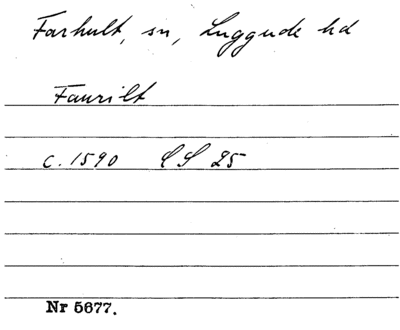 Farhult, sn, Luggude hd
Faurilt
c. 1590 LS 25
Nr 5677.